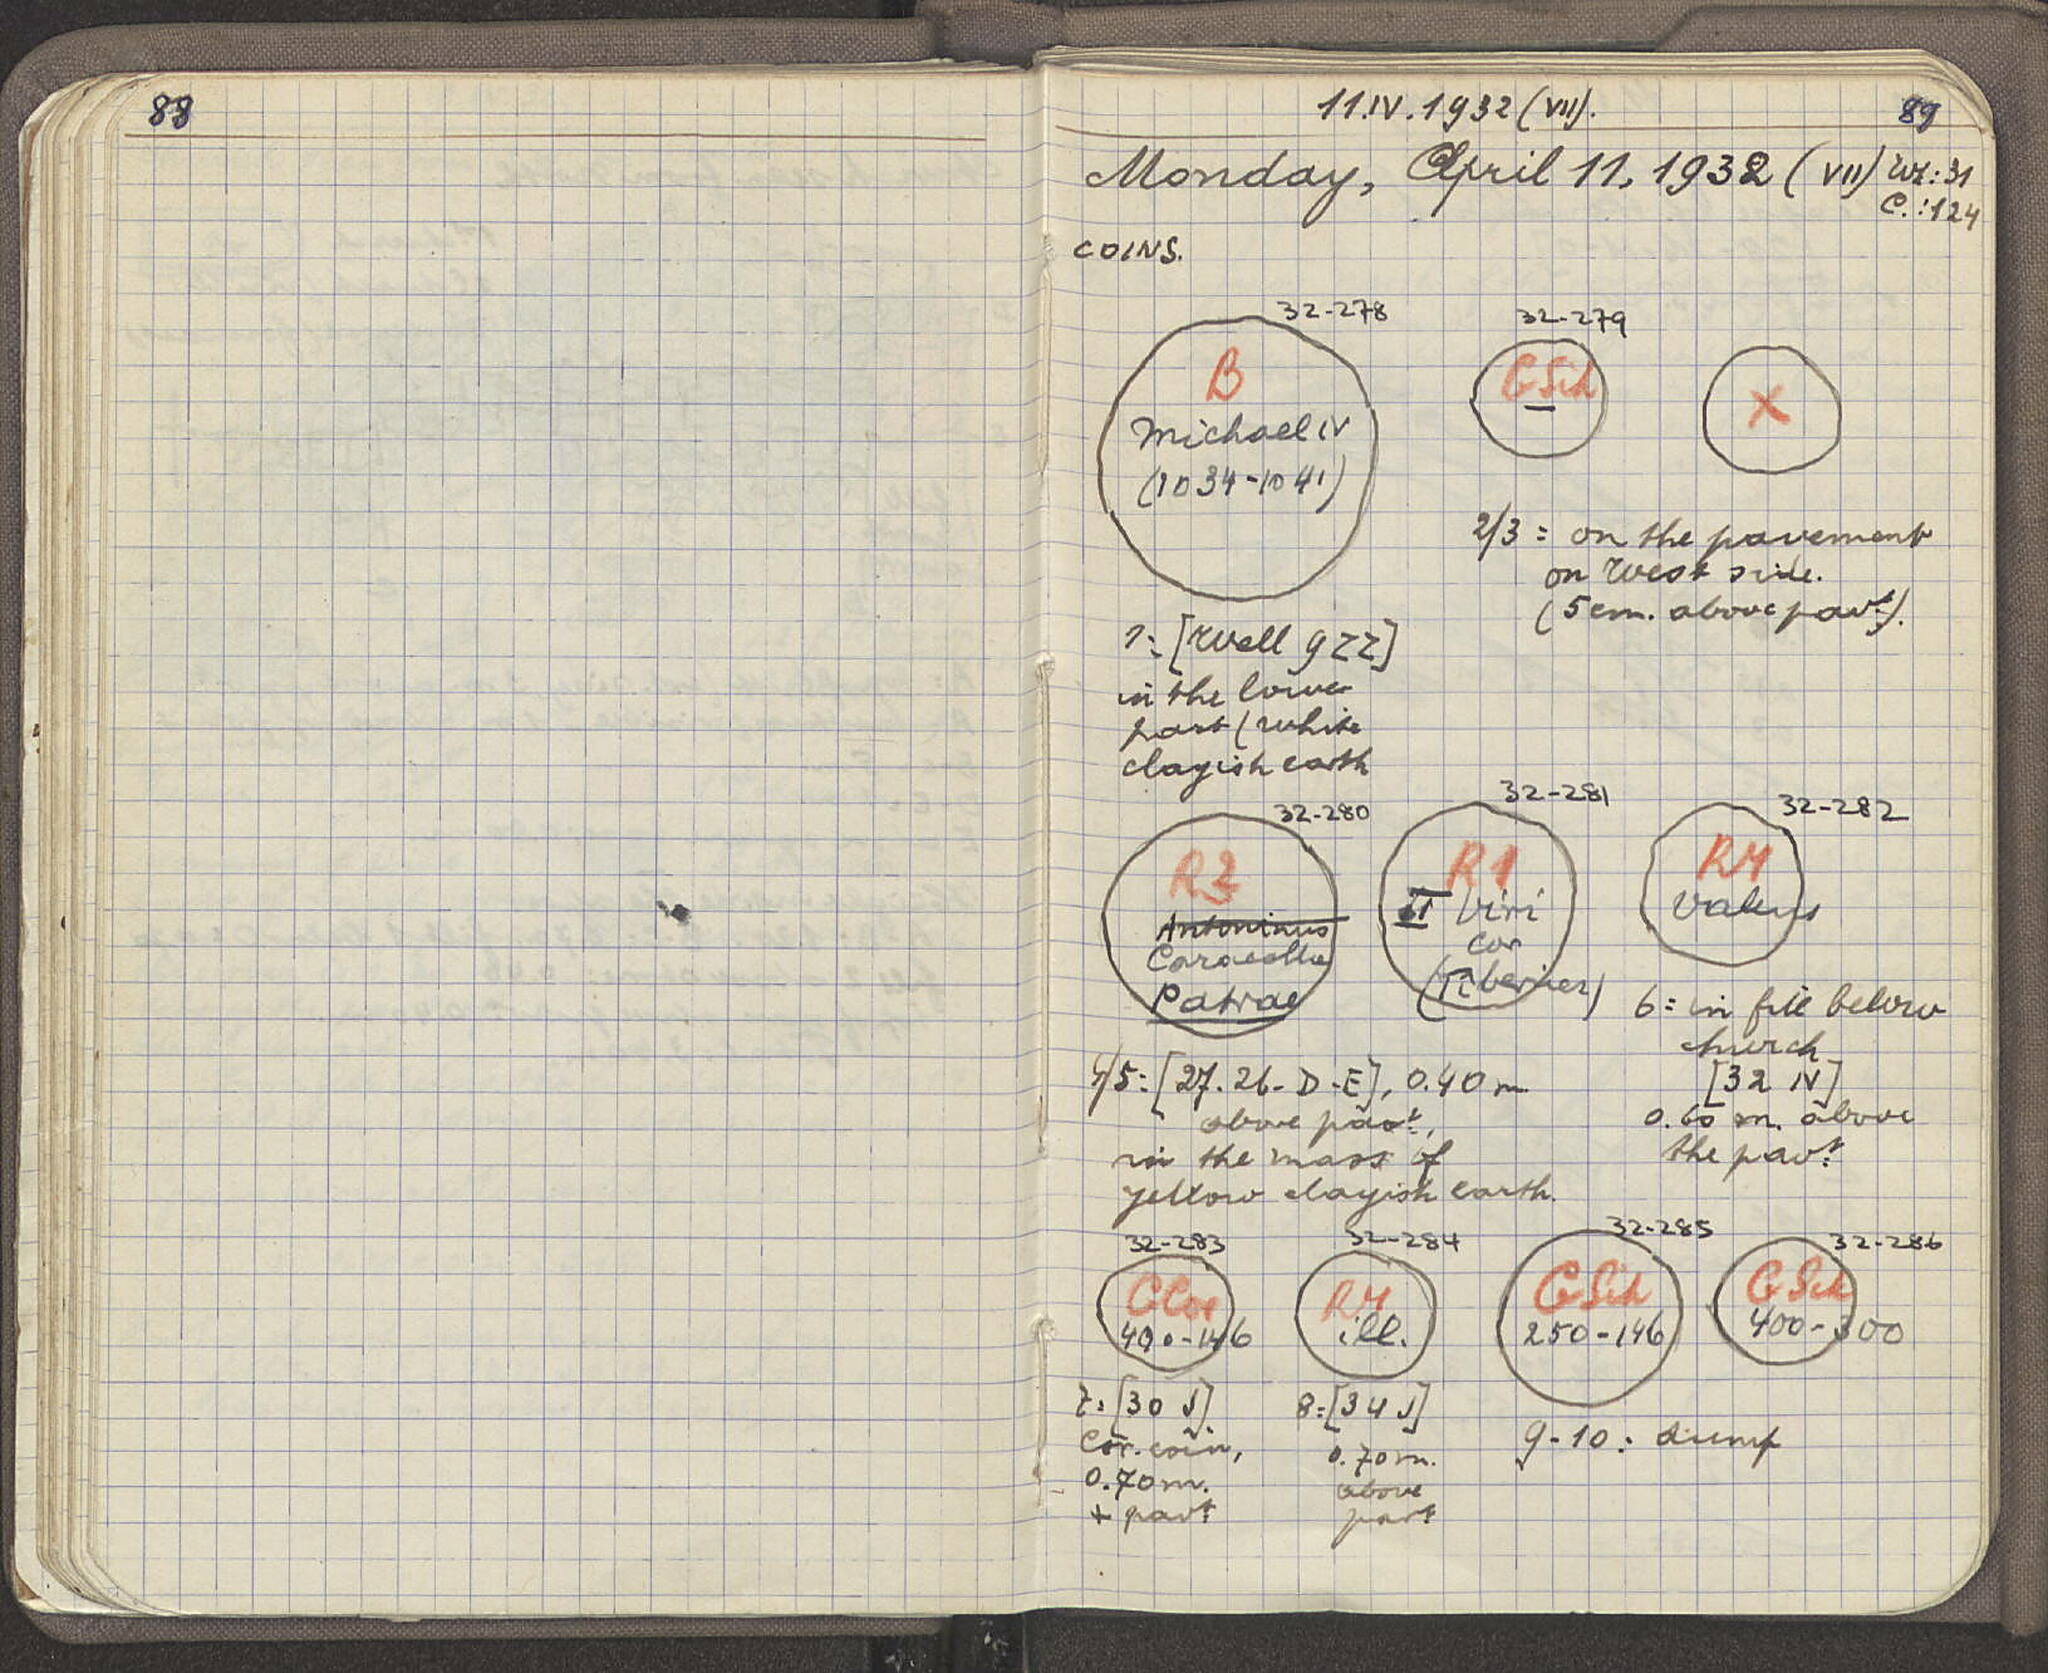 88
11.IV.1932 (VII).
89
Monday, April 11, 1932 (VII) W.: 31
C.: 124
COINS.
32-278
B
Michael IV
(1034-1041)
32-279
G Sik
—
X
2/3 = on the pavement
on west side.
(5cm. above pavt.).
1: [well 9 ZZ]
in the lower
part (white
clayish earth
32-280
R2
Antoninus
Caracalla
Patrae
32-281
R1
II Viri
Cor
(Tiberius)
32-282
R4
Valens
4/5: [27.26-D-E], 0.40 m
above pavt.,
in the mass of
yellow clayish earth.
6 = in fill below
church
[32 IV]
0.60 m. above
the pavt.
32-283
G Cor
400-146
32-284
R4
ill.
32-285
G Sik
250-146
32-286
G Sik
400-300
7: [30 J]
Cor. coin,
0.70m.
+ pavt.
8: [34 J]
0.70m.
above
pavt
9-10: dump